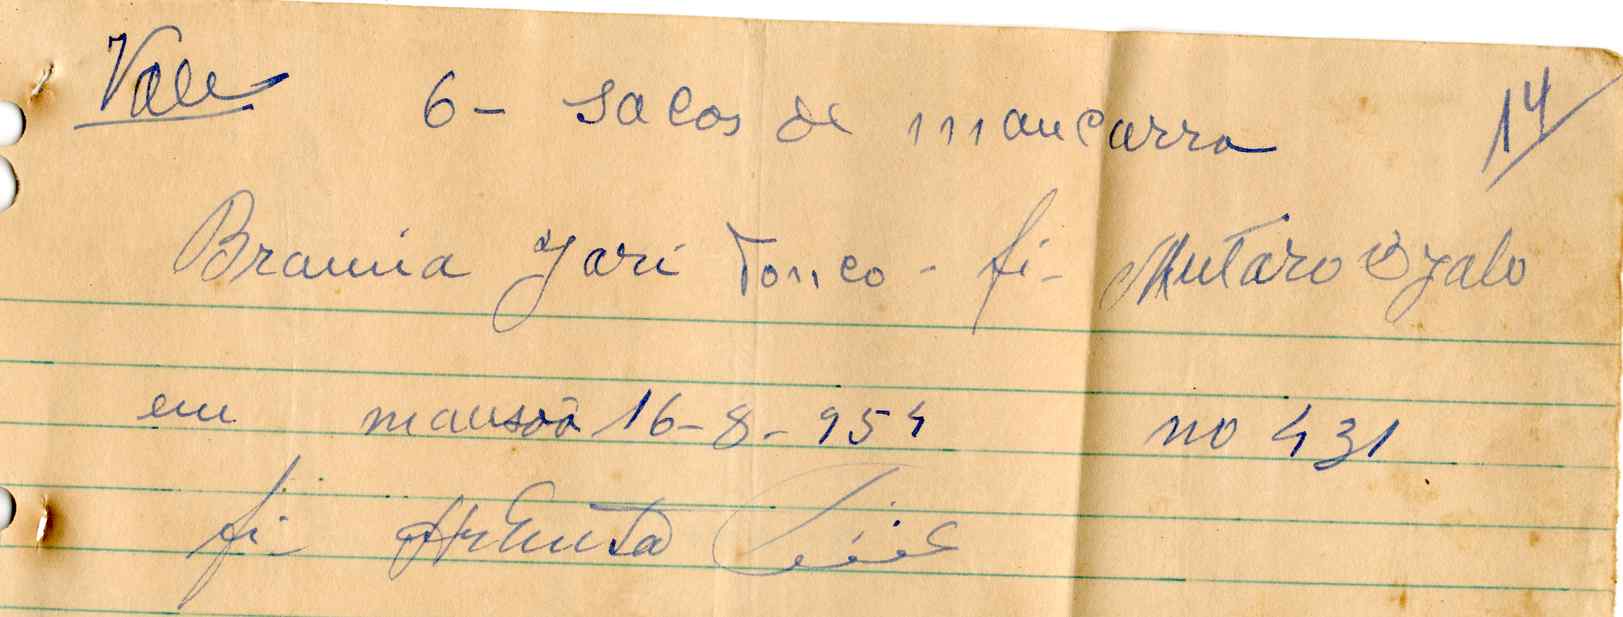 Vale 6- sacos de mancarra 14
Braima Jari Tonco - fi- Mutaro Djalo
em mansôa 16-8-954 no 431
fi-